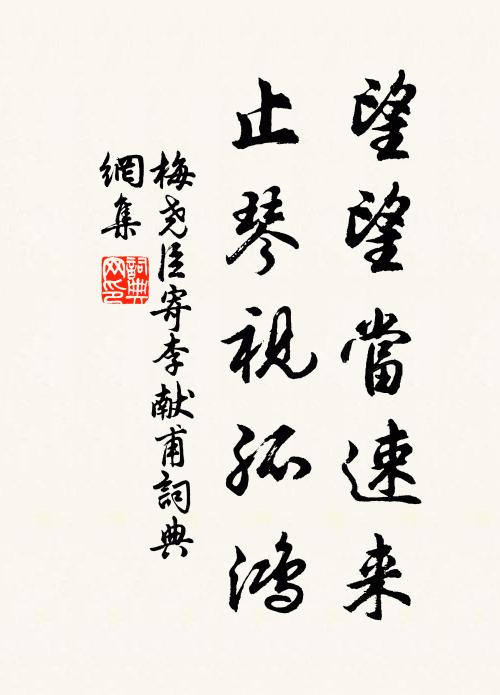 望望當速来
止琴視孤鴻
梅尧臣寄李献甫詞典
網集
詞典網印